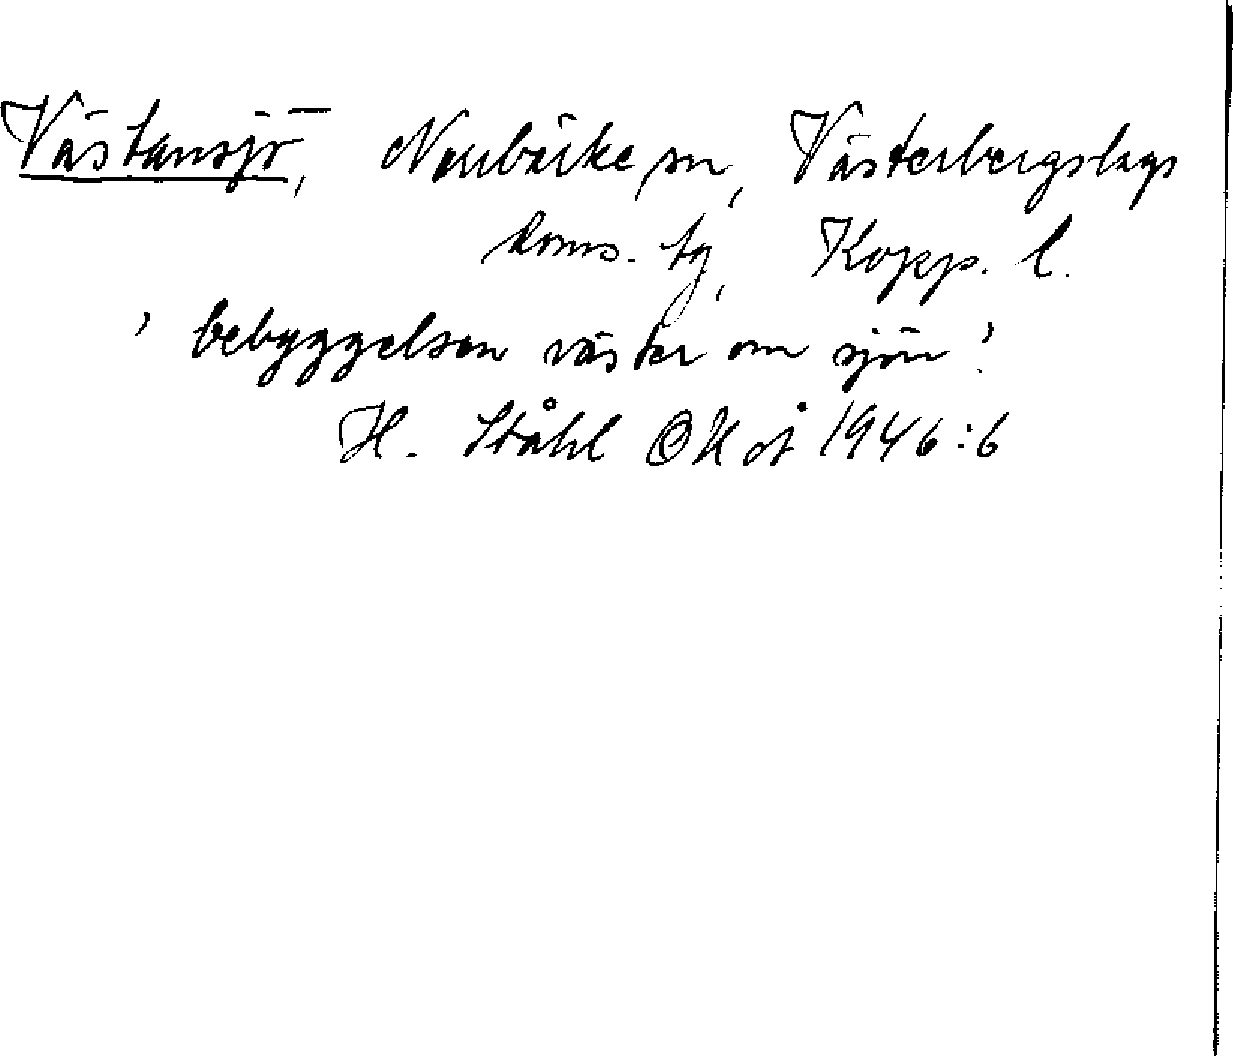 Västansjö, Norrbärke sn, Västerbergslags
doms. tg, Kopp. l.
' bebyggelsen väster om sjön '.
H. Ståhl OUoÅ 1946:6